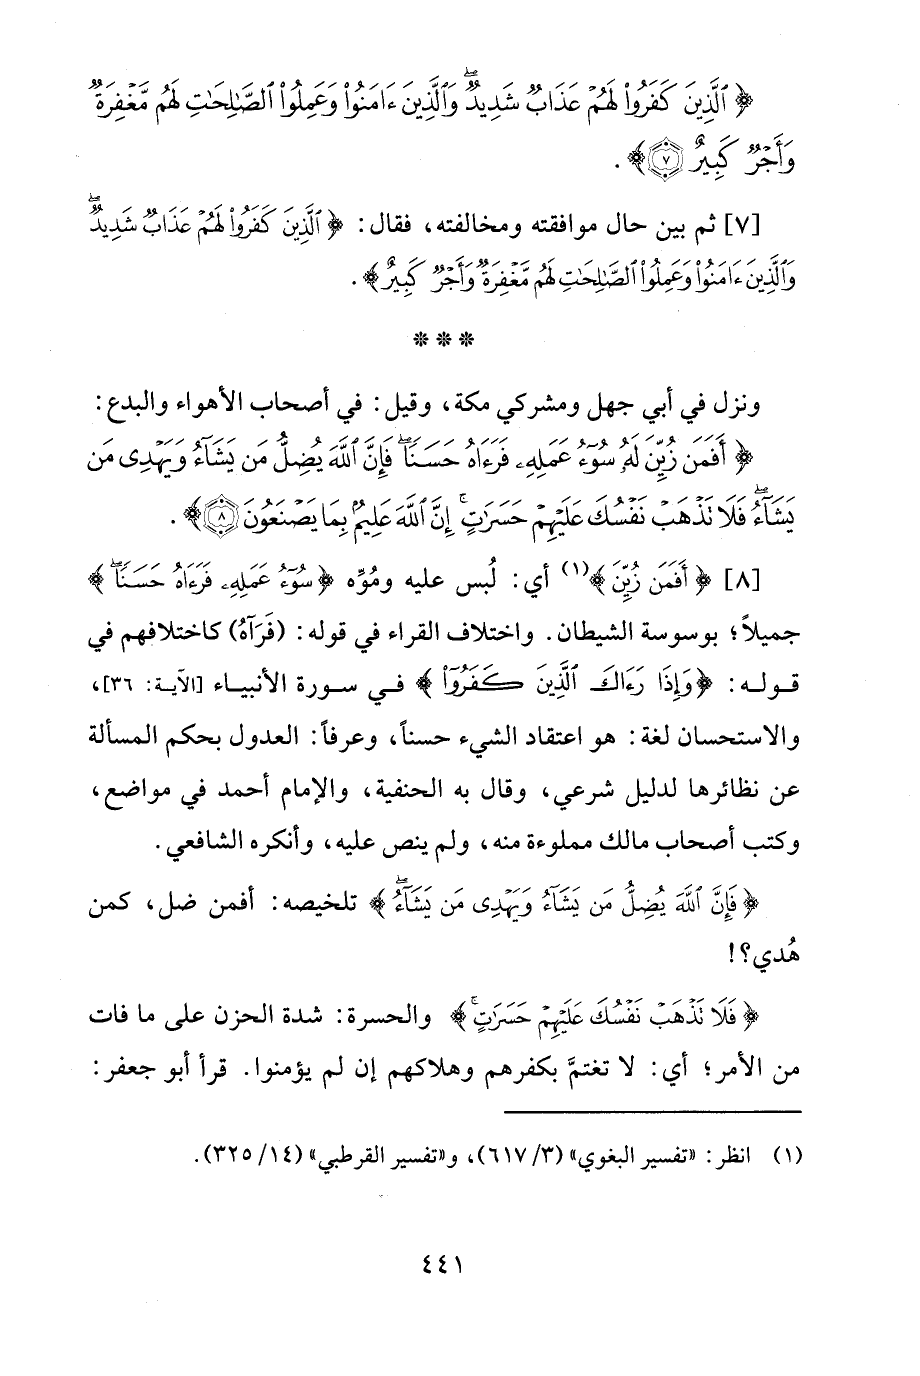 ﴿ ٱلَّذِينَ كَفَرُوا۟ لَهُمْ عَذَابٌ شَدِيدٌ ۖ وَٱلَّذِينَ ءَامَنُوا۟ وَعَمِلُوا۟ ٱلصَّـٰلِحَـٰتِ لَهُم مَّغْفِرَةٌ
وَأَجْرٌ كَبِيرٌ ٧﴾ .
[٧] ثم بين حال موافقته ومخالفته، فقال: ﴿ ٱلَّذِينَ كَفَرُوا۟ لَهُمْ عَذَابٌ شَدِيدٌ ۖ
وَٱلَّذِينَ ءَامَنُوا۟ وَعَمِلُوا۟ ٱلصَّـٰلِحَـٰتِ لَهُم مَّغْفِرَةٌ وَأَجْرٌ كَبِيرٌ ﴾.
* * *
ونزل في أبي جهل ومشركي مكة، وقيل: في أصحاب الأهواء والبدع:
﴿ أَفَمَن زُيِّنَ لَهُۥ سُوٓءُ عَمَلِهِۦ فَرَءَاهُ حَسَنًا ۖ فَإِنَّ ٱللَّهَ يُضِلُّ مَن يَشَآءُ وَيَهْدِى مَن
يَشَآءُ ۖ فَلَا تَذْهَبْ نَفْسُكَ عَلَيْهِمْ حَسَرَٰتٍ ۚ إِنَّ ٱللَّهَ عَلِيمٌۢ بِمَا يَصْنَعُونَ ٨﴾ .
[٨] ﴿ أَفَمَن زُيِّنَ ﴾(١) أي: لُبس عليه ومُوِّه ﴿ سُوٓءُ عَمَلِهِۦ فَرَءَاهُ حَسَنًا ۖ ﴾
جميلاً؛ بوسوسة الشيطان. واختلاف القراء في قوله: (فَرَآهُ) كاختلافهم في
قوله: ﴿ وَإِذَا رَءَاكَ ٱلَّذِينَ كَفَرُوٓا۟ ﴾ في سورة الأنبياء [الآية: ٣٦]،
والاستحسان لغة: هو اعتقاد الشيء حسناً، وعرفاً: العدول بحكم المسألة
عن نظائرها لدليل شرعي، وقال به الحنفية، والإمام أحمد في مواضع،
وكتب أصحاب مالك مملوءة منه، ولم ينص عليه، وأنكره الشافعي.
﴿ فَإِنَّ ٱللَّهَ يُضِلُّ مَن يَشَآءُ وَيَهْدِى مَن يَشَآءُ ۖ ﴾ تلخيصه: أفمن ضل، كمن
هُدي؟!
﴿ فَلَا تَذْهَبْ نَفْسُكَ عَلَيْهِمْ حَسَرَٰتٍ ۚ ﴾ والحسرة: شدة الحزن على ما فات
من الأمر؛ أي: لا تغتمَّ بكفرهم وهلاكهم إن لم يؤمنوا. قرأ أبو جعفر:
(١) انظر: «تفسير البغوي» (٣/ ٦١٧)، و«تفسير القرطبي» (١٤/ ٣٢٥).
٤٤١